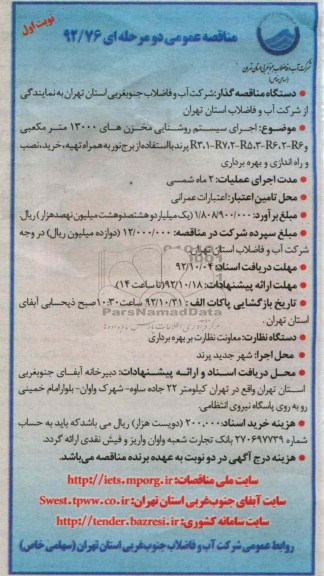 نوبت اول
شرکت آب و فاضلاب جنوبغربی استان تهران
(سهامی خاص)
مناقصه عمومی دو مرحله ای ۹۲/۷۶
● دستگاه مناقصه گذار: شرکت آب و فاضلاب جنوبغربی استان تهران به نمایندگی
از شرکت آب و فاضلاب استان تهران
● موضوع: اجرای سیستم روشنایی مخزن های ۱۳۰۰۰ متر مکعبی
R۳،۱-R۷،۲-R۵،۳-R۶،۲-R۶و پرند با استفاده از برج نور به همراه تهیه، خرید، نصب
و راه اندازی و بهره برداری
● مدت اجرای عملیات: ۲ ماه شمسی
● محل تامین اعتبار: اعتبارات عمرانی
● مبلغ برآورد: ۱/۸۰۸/۹۰۰/۰۰۰ (یک میلیارد و هشتصد و هشت میلیون نهصد هزار) ریال
● مبلغ سپرده شرکت در مناقصه: ۱۲/۰۰۰/۰۰۰ (دوازده میلیون ریال) در وجه
شرکت آب و فاضلاب استان تهران
● مهلت دریافت اسناد: ۹۲/۱۰/۰۴
● مهلت ارائه پیشنهادات: ۹۲/۱۰/۱۸ (تا ساعت ۱۴)
● تاریخ بازگشایی پاکات الف: ۹۲/۱۰/۲۱ ساعت ۱۰:۳۰ صبح ذیحسابی آبفای
استان تهران.
● دستگاه نظارت: معاونت نظارت بر بهره برداری
● محل اجرا: شهر جدید پرند
● محل دریافت اسناد و ارائه پیشنهادات: دبیرخانه آبفای جنوبغربی
استان تهران واقع در تهران کیلومتر ۲۲ جاده ساوه- شهرک واوان- بلوار امام خمینی
رو به روی پاسگاه نیروی انتظامی.
● هزینه خرید اسناد: ۲۰۰,۰۰۰ (دویست هزار) ریال می باشد که باید به حساب
شماره ۲۷۰۶۹۷۷۳۹ بانک تجارت شعبه واوان واریز و فیش نقدی ارائه گردد.
● هزینه درج آگهی در دو نوبت به عهده برنده مناقصه می باشد.
سایت ملی مناقصات: http://iets.mporg.ir
سایت آبفای جنوب غربی استان تهران: Swest.tpww.co.ir
سایت سامانه کشوری: http://tender.bazresi.ir
روابط عمومی شرکت آب و فاضلاب جنوب غربی استان تهران (سهامی خاص)
ParsNamadData